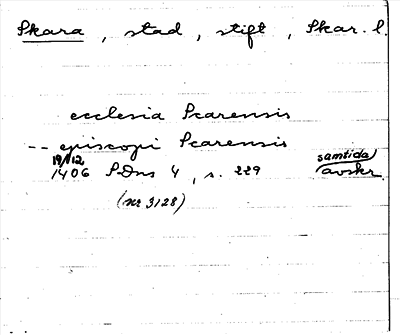 Skara, stad, stift, Skar. l.
ecclesia Scarensis
-- episcopi Scarensis
19/12 1406 SDns 4, s. 229 samtida avskr.
(nr 3128)